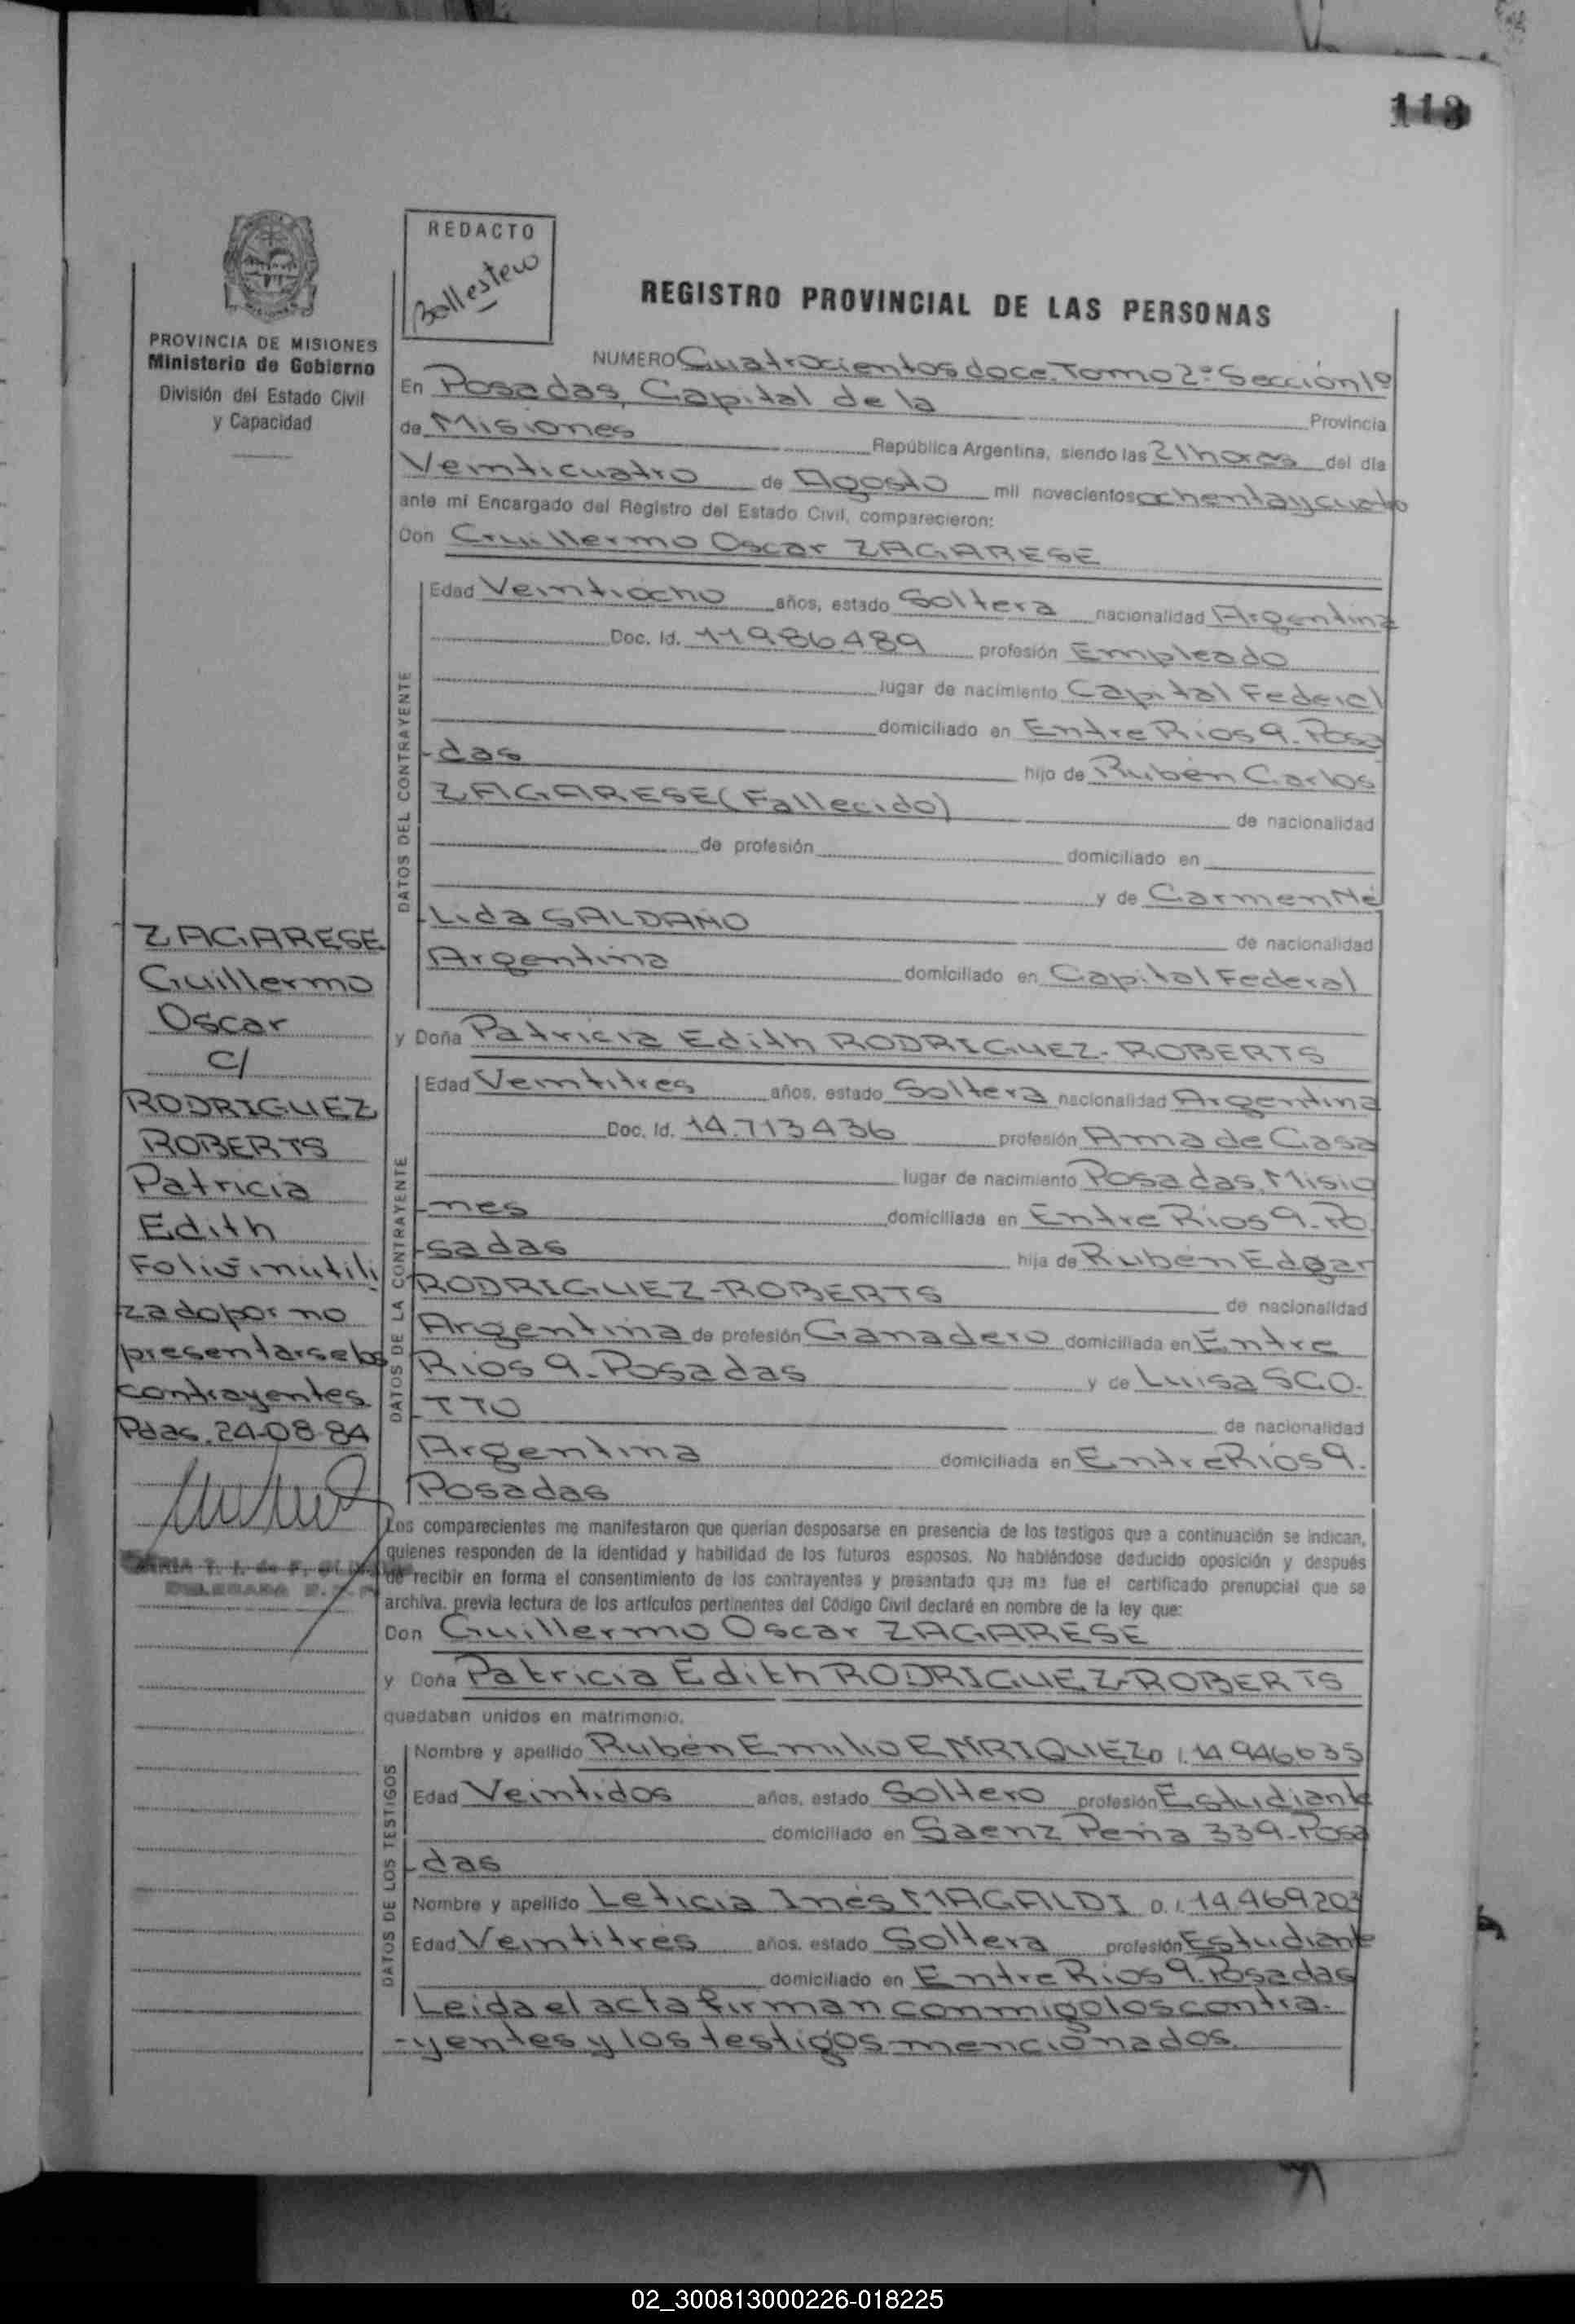 113
REDACTO
Ballestero
PROVINCIA DE MISIONES
Ministerio de Gobierno
División del Estado Civil
y Capacidad
REGISTRO PROVINCIAL DE LAS PERSONAS
NUMERO Cuatrocientos doce. Tomo 2º Sección 1º
En Posadas, Capital de la Provincia
de Misiones República Argentina, siendo las 21 horas del día
Veinticuatro de Agosto mil novecientos ochenta y cuatro
ante mí Encargado del Registro del Estado Civil, comparecieron:
Don Guillermo Oscar ZAGARESE
DATOS DEL CONTRAYENTE
Edad Veintiocho años, estado Soltera nacionalidad Argentina
Doc. Id. 11986489 profesión Empleado
lugar de nacimiento Capital Federal
domiciliado en Entre Rios 9. Posa
-das hijo de Rubén Carlos
ZAGARESE (Fallecido) de nacionalidad
de profesión domiciliado en
y de Carmen Né
Lida SALDAÑO de nacionalidad
Argentina domiciliado en Capital Federal
y Doña Patricia Edith RODRIGUEZ-ROBERTS
DATOS DE LA CONTRAYENTE
Edad Veintitres años, estado Soltera nacionalidad Argentina
Doc. Id. 14.713436 profesión Ama de Casa
lugar de nacimiento Posadas, Misio
-nes domiciliada en Entre Rios 9. Po
-sadas hija de Rubén Edgar
RODRIGUEZ-ROBERTS de nacionalidad
Argentina de profesión Ganadero domiciliada en Entre
Rios 9. Posadas y de Luisa SCO.
-TTO de nacionalidad
Argentina domiciliada en Entre Rios 9.
Posadas
ZAGARESE
Guillermo
Oscar
c/
RODRIGUEZ
ROBERTS
Patricia
Edith
Folio inutili
zado por no
presentarse los
contrayentes
Pdas. 24-08-84
Los comparecientes me manifestaron que querían desposarse en presencia de los testigos que a continuación se indican,
quienes responden de la identidad y habilidad de los futuros esposos. No habiéndose deducido oposición y después
de recibir en forma el consentimiento de los contrayentes y presentado que me fue el certificado prenupcial que se
archiva, previa lectura de los artículos pertinentes del Código Civil declaré en nombre de la ley que:
Don Guillermo Oscar ZAGARESE
y Doña Patricia Edith RODRIGUEZ-ROBERTS
quedaban unidos en matrimonio.
DATOS DE LOS TESTIGOS
Nombre y apellido Rubén Emilio ENRIQUEZ D.I. 14.946.635
Edad Veintidos años, estado Soltero profesión Estudiante
domiciliado en Saenz Peña 339-Posa
-das
Nombre y apellido Leticia Inés MAGALDI D.I. 14.469.203
Edad Veintitrés años, estado Soltera profesión Estudiante
domiciliado en Entre Rios 9. Posadas
Leída el acta firman conmigo los contra-
-yentes y los testigos mencionados.
02_300813000226-018225